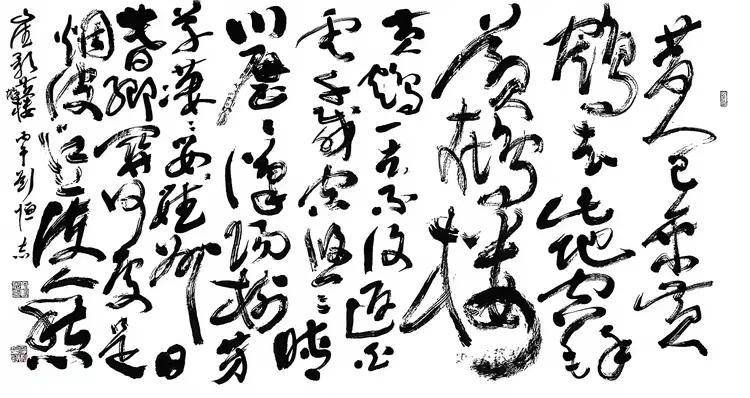 昔人已乘黄
鶴去此地空餘
黄鶴樓
黄鶴一去不復返白
雲千載空悠悠晴
川歷歷漢陽樹芳
草萋萋鸚鵡洲日
暮鄉關何處是
烟波江上使人愁
崔顥黄鶴樓 丙午 劉恒志